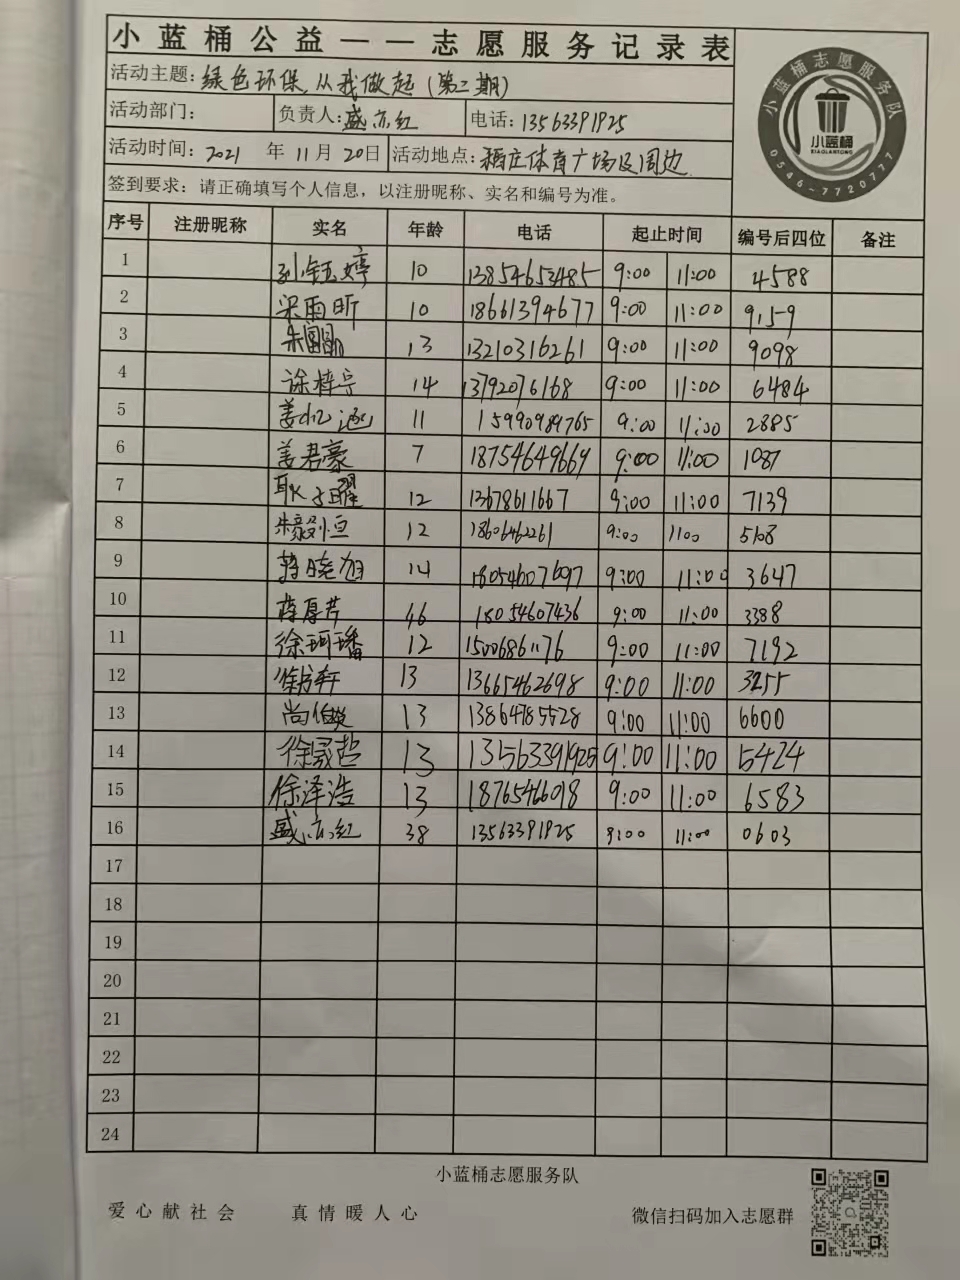 小蓝桶公益——志愿服务记录表
活动主题：绿色环保，从我做起（第二期）
活动部门： 负责人：盛亦红 电话：13563391925
活动时间：2021 年 11 月 20 日 活动地点：稻庄体育广场及周边
签到要求：请正确填写个人信息，以注册昵称、实名和编号为准。
小蓝桶志愿服务队
小蓝桶
XIAOLANTONG
0546-7720777
序号 注册昵称 实名 年龄 电话 起止时间 编号后四位 备注
1 孙钰婷 10 13854653485 9:00 11:00 4588
2 宋雨昕 10 18661394677 9:00 11:00 9159
3 13 13210316261 9:00 11:00 9098
4 徐梓宁 14 13792076168 9:00 11:00 6484
5 11 15990989765 9:00 11:00 2885
6 姜君豪 7 18754649669 9:00 11:00 1087
7 耿子曜 12 13678611667 9:00 11:00 7139
8 12 18606462261 9:00 1100
9 蒋晓旭 14 18054607697 9:00 11:00 3647
10 蒋厚芹 46 18054607436 9:00 11:00 3388
11 徐珂璠 12 15006861176 9:00 11:00 7192
12 13 13665462698 9:00 11:00 3255
13 13 13864785528 9:00 11:00 6600
14 徐晟哲 13 13563391925 9:00 11:00 5424
15 徐泽浩 13 9:00 11:00 6583
16 盛亦红 38 13563391925 9:00 11:00 0603
17
18
19
20
21
22
23
24
小蓝桶志愿服务队
爱心献社会 真情暖人心 微信扫码加入志愿群